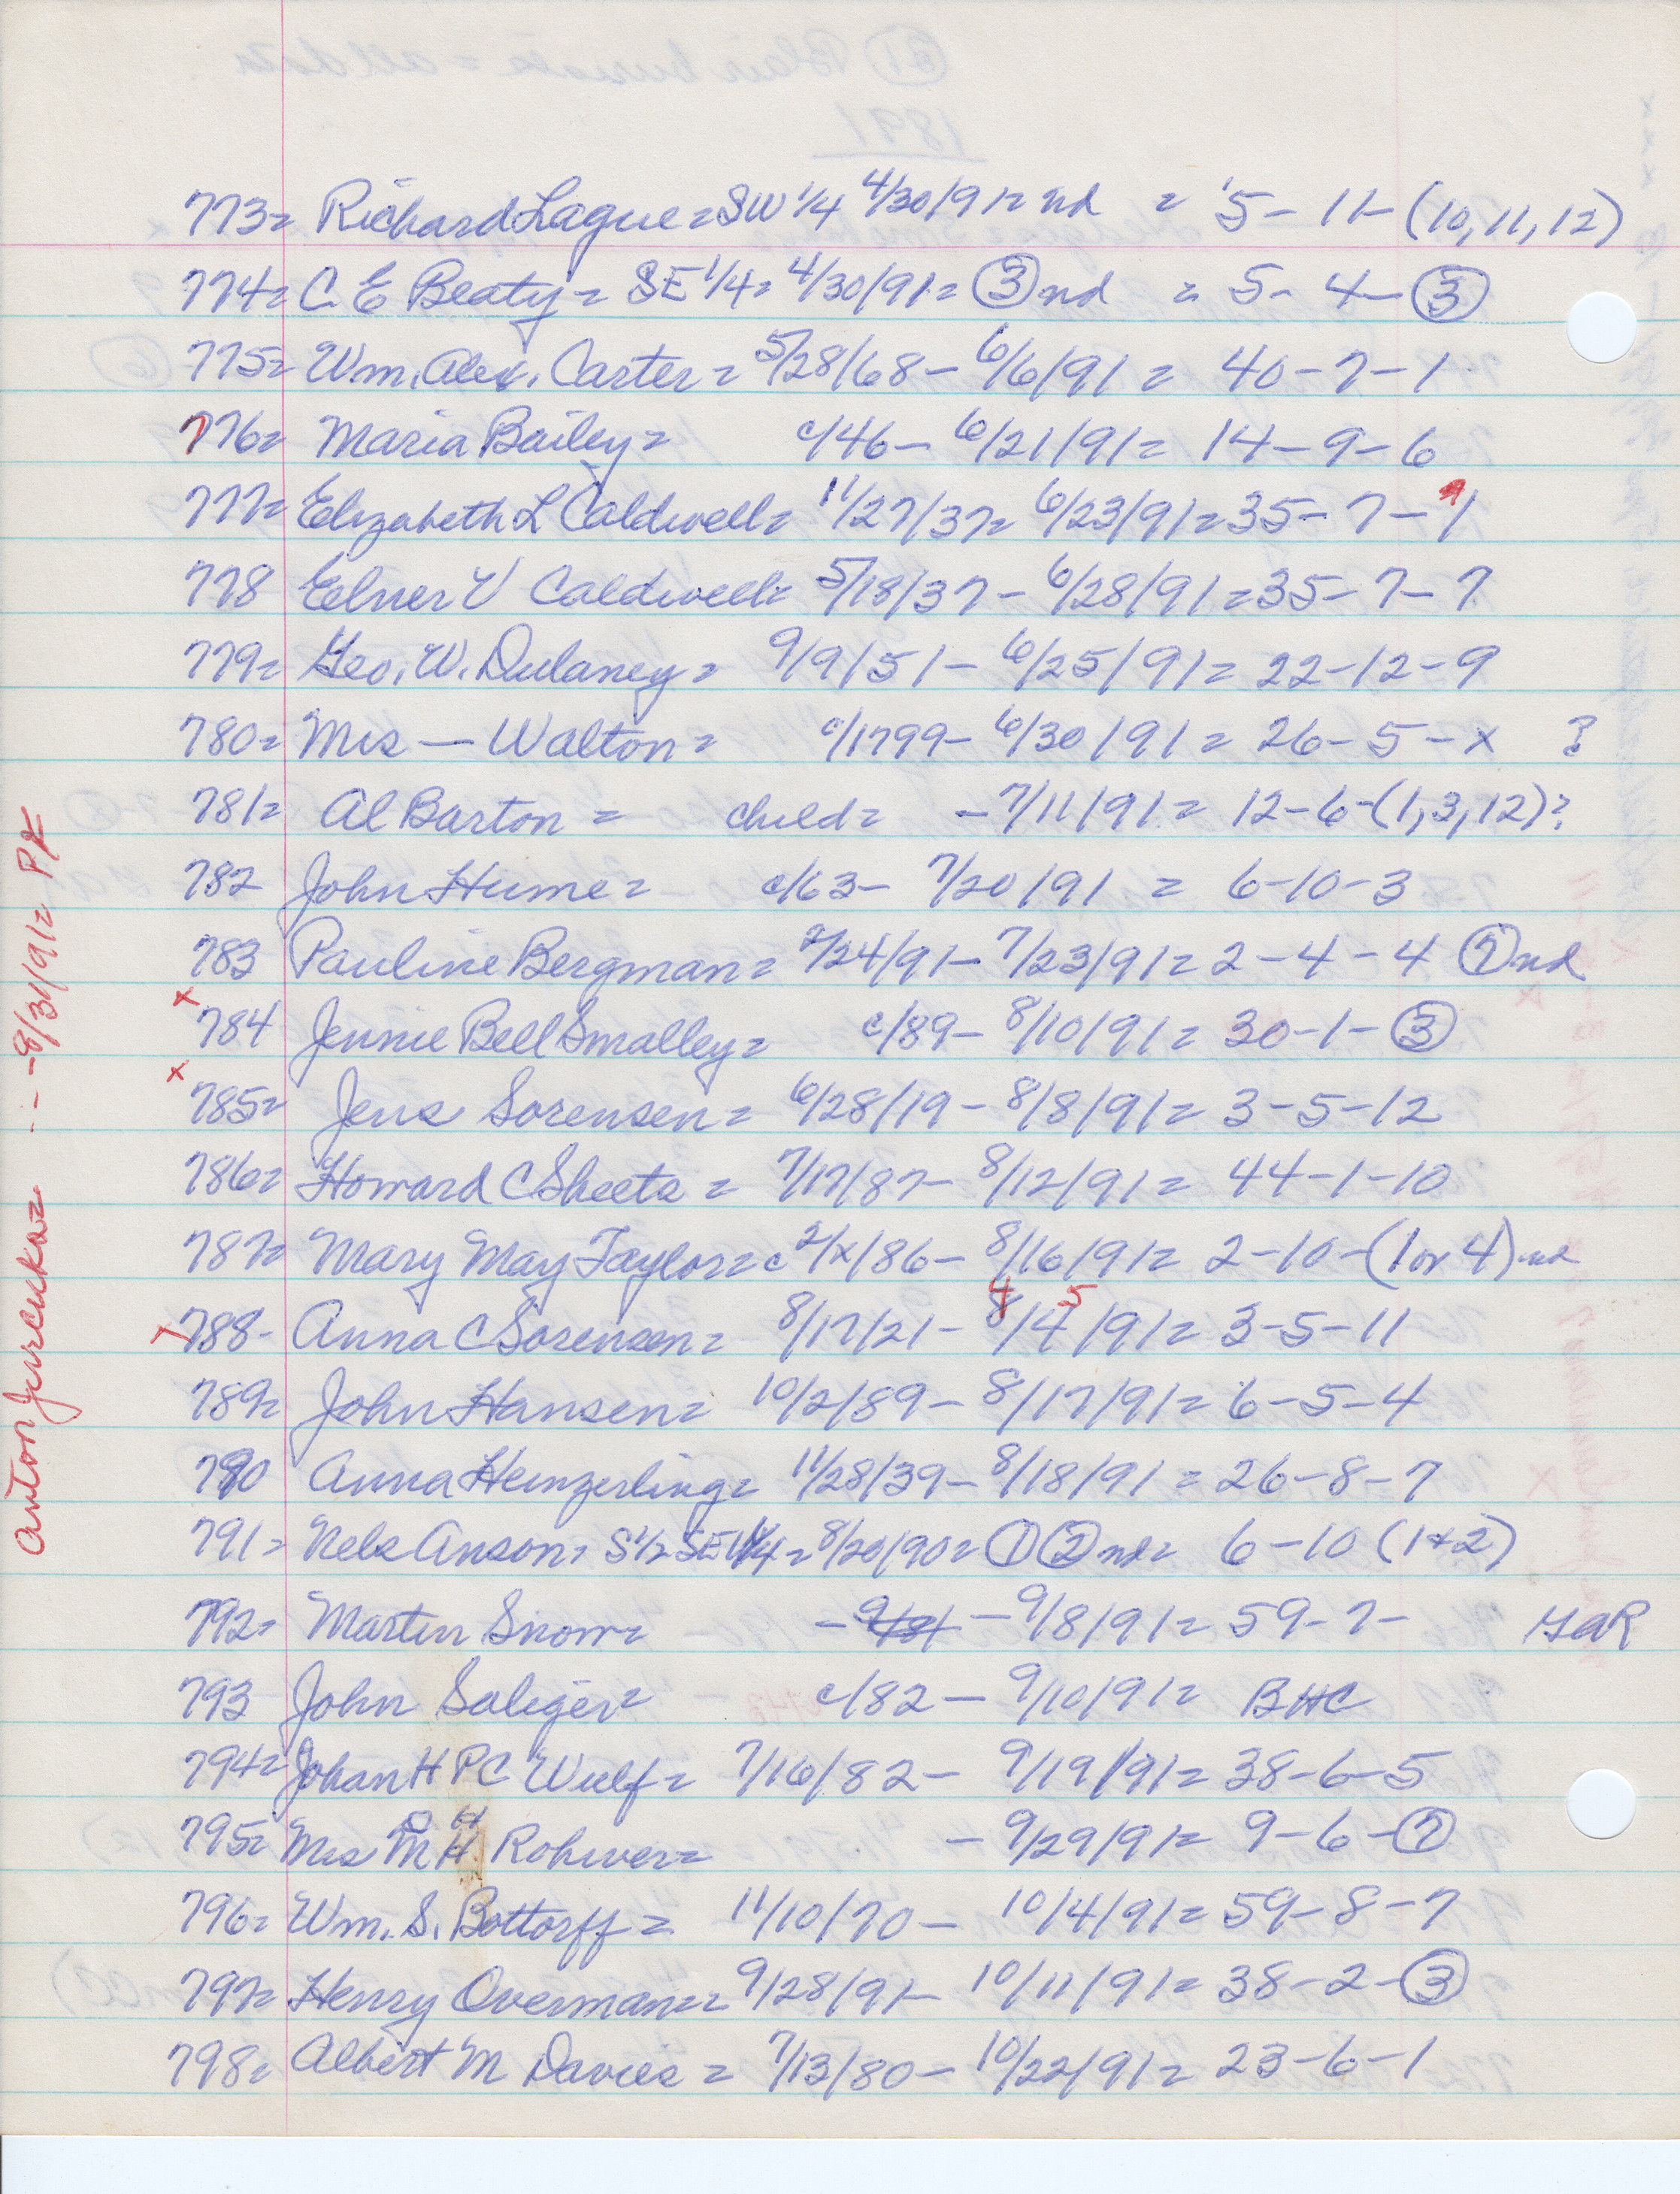 773= Richard Lague = SW 1/4 4/30/91= nd = 5- 11- (10,11,12)
774= C. E Beaty = SE 1/4= 4/30/91= ③ nd = 5- 4- ③
775= Wm. Alex. Carter = 5/28/68 - 6/6/91 = 40-7-1
776= Maria Bailey = c/46- 6/21/91= 14-9-6
777= Elizabeth L Caldwell= 11/27/37= 6/23/91=35-7-1 9
778 Elmer V Caldwell= 5/18/37 - 6/28/91=35-7-7
779= Geo. W. Dulaney = 9/9/51- 6/25/91= 22-12-9
780= Mrs — Walton = c/1799- 6/30/91= 26-5-x ?
781= Al Barton = child= -7/11/91= 12-6-(1,3,12)?
782 John Hume = c/63- 7/20/91 = 6-10-3
783 Pauline Bergman= 2/24/91- 7/23/91= 2-4-4 ② nd
x 784 Jennie Bell Smalley= c/89- 8/10/91= 30-1-③
x 785= Jens Sorensen= 6/28/19- 8/8/91= 3-5-12
786= Howard C Sheets = 7/17/87- 8/12/91= 44-1-10
787= Mary May Taylor= c 2/x/86- 8/16/91= 2-10-(1 or 4) nd
4 5
788- Anna C Sorensen= 8/17/21- 8/14/91= 3-5-11
789= John Hansen= 10/2/89- 8/17/91= 6-5-4
790 Anna Heinzerling= 11/28/39- 8/18/91= 26-8-7
791= Nels Anson= S 1/2 SE 1/4= 8/20/90= ① ② nd= 6-10 (1+2)
792= Martin Snow= - -9/8/91= 59-7- GAR
793 John Saliger= c/82- 9/10/91= BHC
794= Johan H PC Wulf= 7/16/82- 9/19/91= 38-6-5
795= Mrs M H Rohwer= - 9/29/91= 9-6-⑦
796= Wm. S. Bottorff = 11/10/70- 10/4/91= 59-8-7
797= Henry Overman== 9/28/91- 10/11/91= 38-2-③
798= Albert M Davies = 7/13/80- 10/22/91= 23-6-1
Anton Jureckaz - - -8/31/91= PK